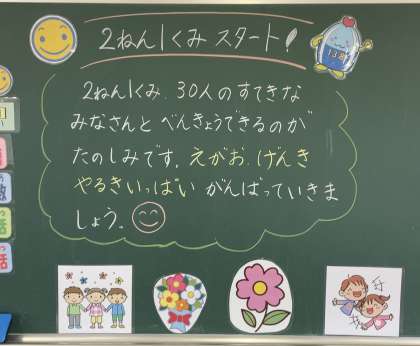 2ねん1くみ スタート!
2ねん1くみ、30人のすてきな
みなさんと べんきょうできるのが
たのしみです。えがお、げんき
やるきいっぱい がんばっていきま
しょう。